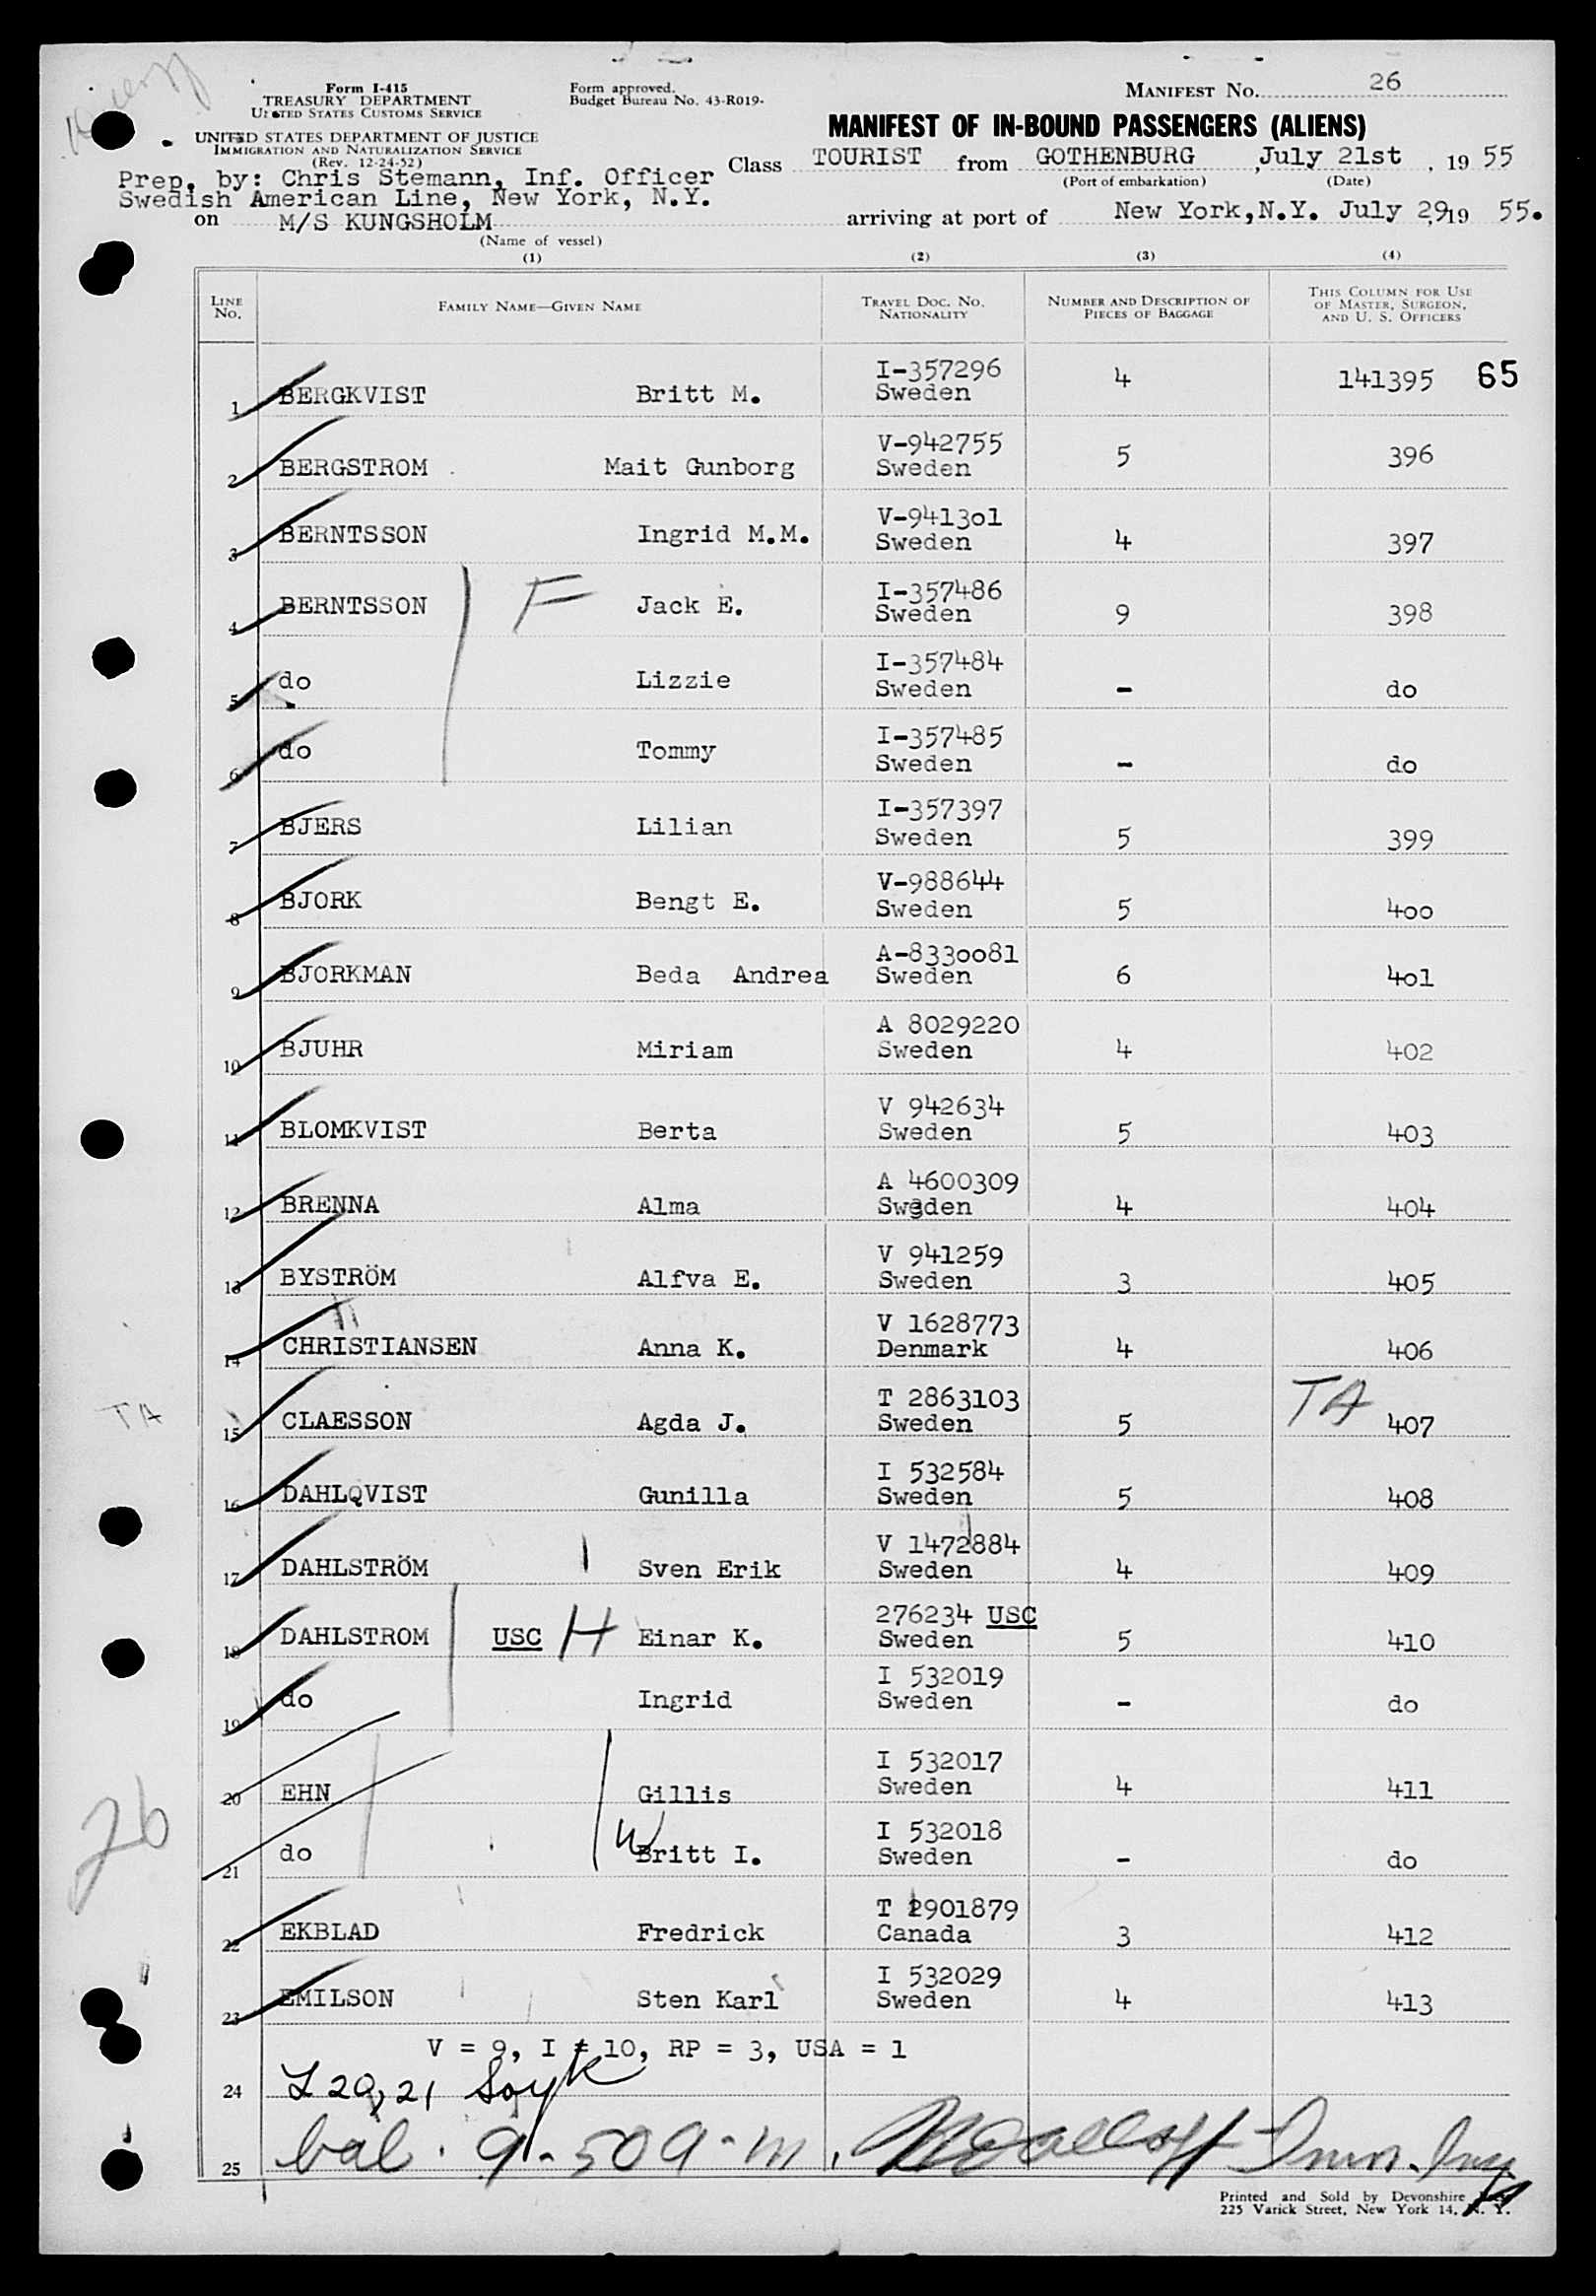 Form I-415
TREASURY DEPARTMENT
UNITED STATES CUSTOMS SERVICE
Form approved.
Budget Bureau No. 43-R019-
MANIFEST NO. 26
UNITED STATES DEPARTMENT OF JUSTICE
IMMIGRATION AND NATURALIZATION SERVICE
(Rev. 12-24-52)
MANIFEST OF IN-BOUND PASSENGERS (ALIENS)
Class TOURIST from GOTHENBURG, July 21st, 19 55
(Port of embarkation) (Date)
Prep. by: Chris Stemann, Inf. Officer
Swedish American Line, New York, N.Y.
on M/S KUNGSHOLM arriving at port of New York, N.Y. July 29, 19 55.
(Name of vessel)
(1) (2) (3) (4)
LINE NO. FAMILY NAME—GIVEN NAME TRAVEL DOC. NO. NATIONALITY NUMBER AND DESCRIPTION OF PIECES OF BAGGAGE THIS COLUMN FOR USE OF MASTER, SURGEON, AND U. S. OFFICERS
1 BERGKVIST Britt M. I-357296 Sweden 4 141395 65
2 BERGSTROM Mait Gunborg V-942755 Sweden 5 396
3 BERNTSSON Ingrid M.M. V-941301 Sweden 4 397
4 BERNTSSON F Jack E. I-357486 Sweden 9 398
5 do Lizzie I-357484 Sweden - do
6 do Tommy I-357485 Sweden - do
7 BJERS Lilian I-357397 Sweden 5 399
8 BJORK Bengt E. V-988644 Sweden 5 400
9 BJORKMAN Beda Andrea A-8330081 Sweden 6 401
10 BJUHR Miriam A 8029220 Sweden 4 402
11 BLOMKVIST Berta V 942634 Sweden 5 403
12 BRENNA Alma A 4600309 Sweden 4 404
13 BYSTRÖM Alfva E. V 941259 Sweden 3 405
14 CHRISTIANSEN Anna K. V 1628773 Denmark 4 406
TA 15 CLAESSON Agda J. T 2863103 Sweden 5 TA 407
16 DAHLQVIST Gunilla I 532584 Sweden 5 408
17 DAHLSTRÖM Sven Erik V 1472884 Sweden 4 409
18 DAHLSTROM USC H Einar K. 276234 USC Sweden 5 410
19 do Ingrid I 532019 Sweden - do
20 EHN Gillis I 532017 Sweden 4 411
26
21 do W Britt I. I 532018 Sweden - do
22 EKBLAD Fredrick T 2901879 Canada 3 412
23 EMILSON Sten Karl I 532029 Sweden 4 413
V = 9, I = 10, RP = 3, USA = 1
24 L 20, 21 Soyk
25 bal. 9-509-m. Imm. Insp
Printed and Sold by Devonshire
225 Varick Street, New York 14, N. Y.